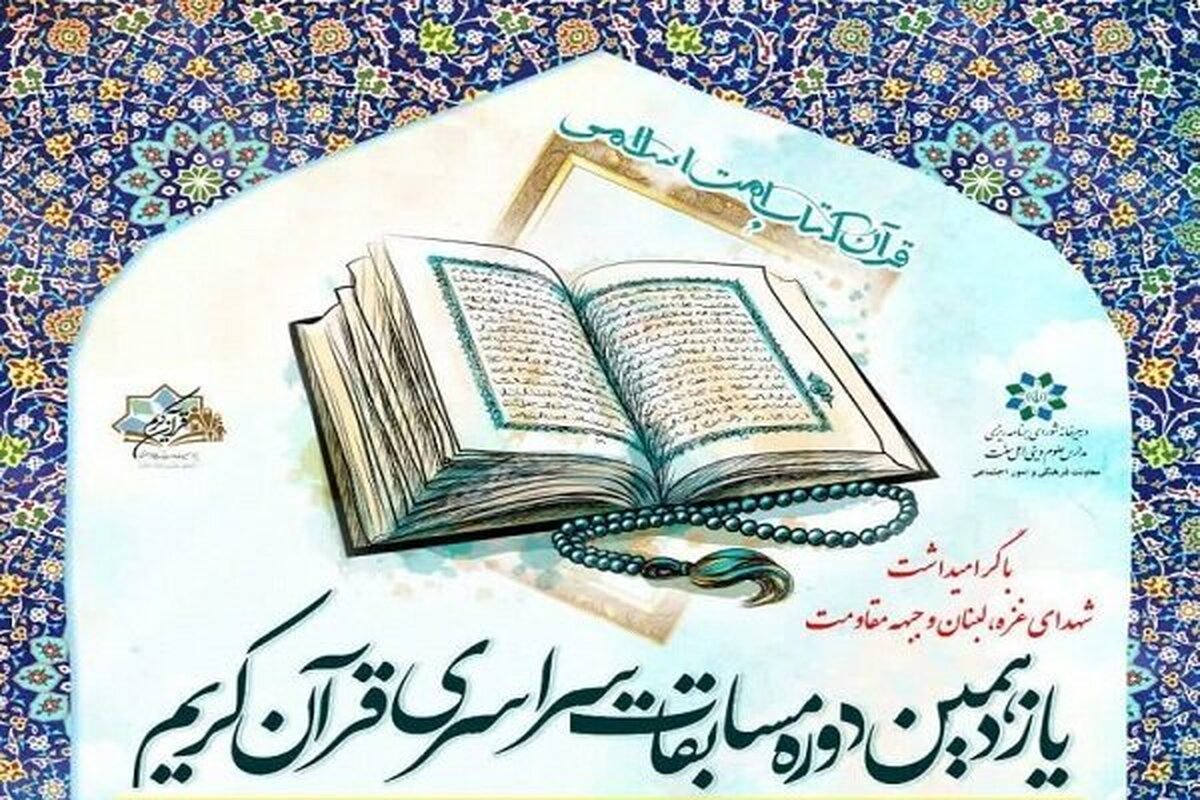 قرآن کتاب امت اسلامی
قرآن کریم
دبیرخانه شورای برنامه ریزی
مدارس علوم دینی اهل سنت
معاونت فرهنگی و امور اجتماعی
با گرامیداشت
شهدای غزه، لبنان و جبهه مقاومت
یازدهمین دوره مسابقات سراسری قرآن کریم